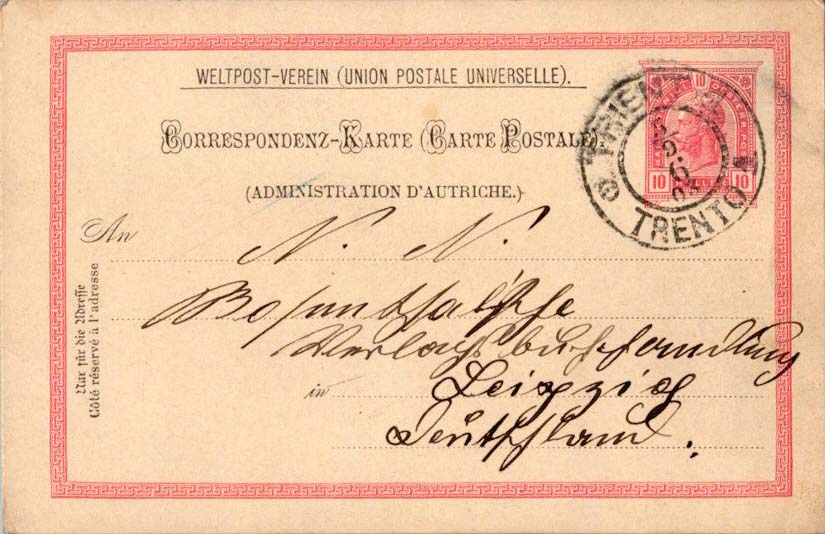 WELTPOST-VEREIN (UNION POSTALE UNIVERSELLE).
CORRESPONDENZ-KARTE (CARTE POSTALE)
(ADMINISTRATION D'AUTRICHE.)
10
10 10
TRIENT 1
TRENTO 1
An N. N.
Verlagsbuchhandlung
in Leipzig
Deutschland.
Nur für die Adresse
Côté réservé à l'adresse